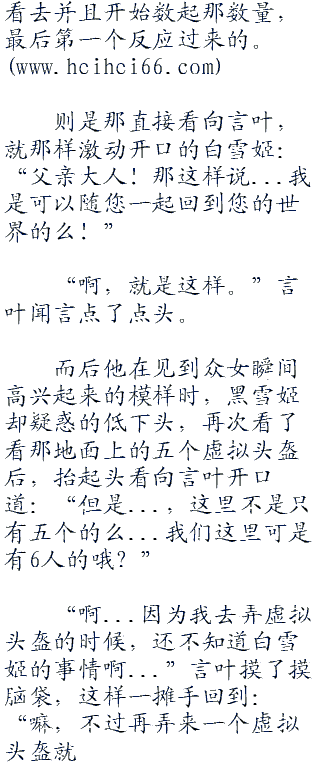 看去并且开始数起那数量，
最后第一个反应过来的。
(www.hcihci66.com)
则是那直接看向言叶，
就那样激动开口的白雪姬：
“父亲大人！那这样说...我
是可以随您一起回到您的世
界的么！”
“啊，就是这样。”言
叶闻言点了点头。
而后他在见到众女瞬间
高兴起来的模样时，黑雪姬
却疑惑的低下头，再次看了
看那地面上的五个虚拟头盔
后，抬起头看向言叶开口
道：“但是...，这里不是只
有五个的么...我们这里可是
有6人的哦？”
“啊...因为我去弄虚拟
头盔的时候，还不知道白雪
姬的事情啊...”言叶摸了摸
脑袋，这样一摊手回到：
“嘛，不过再弄来一个虚拟
头盔就